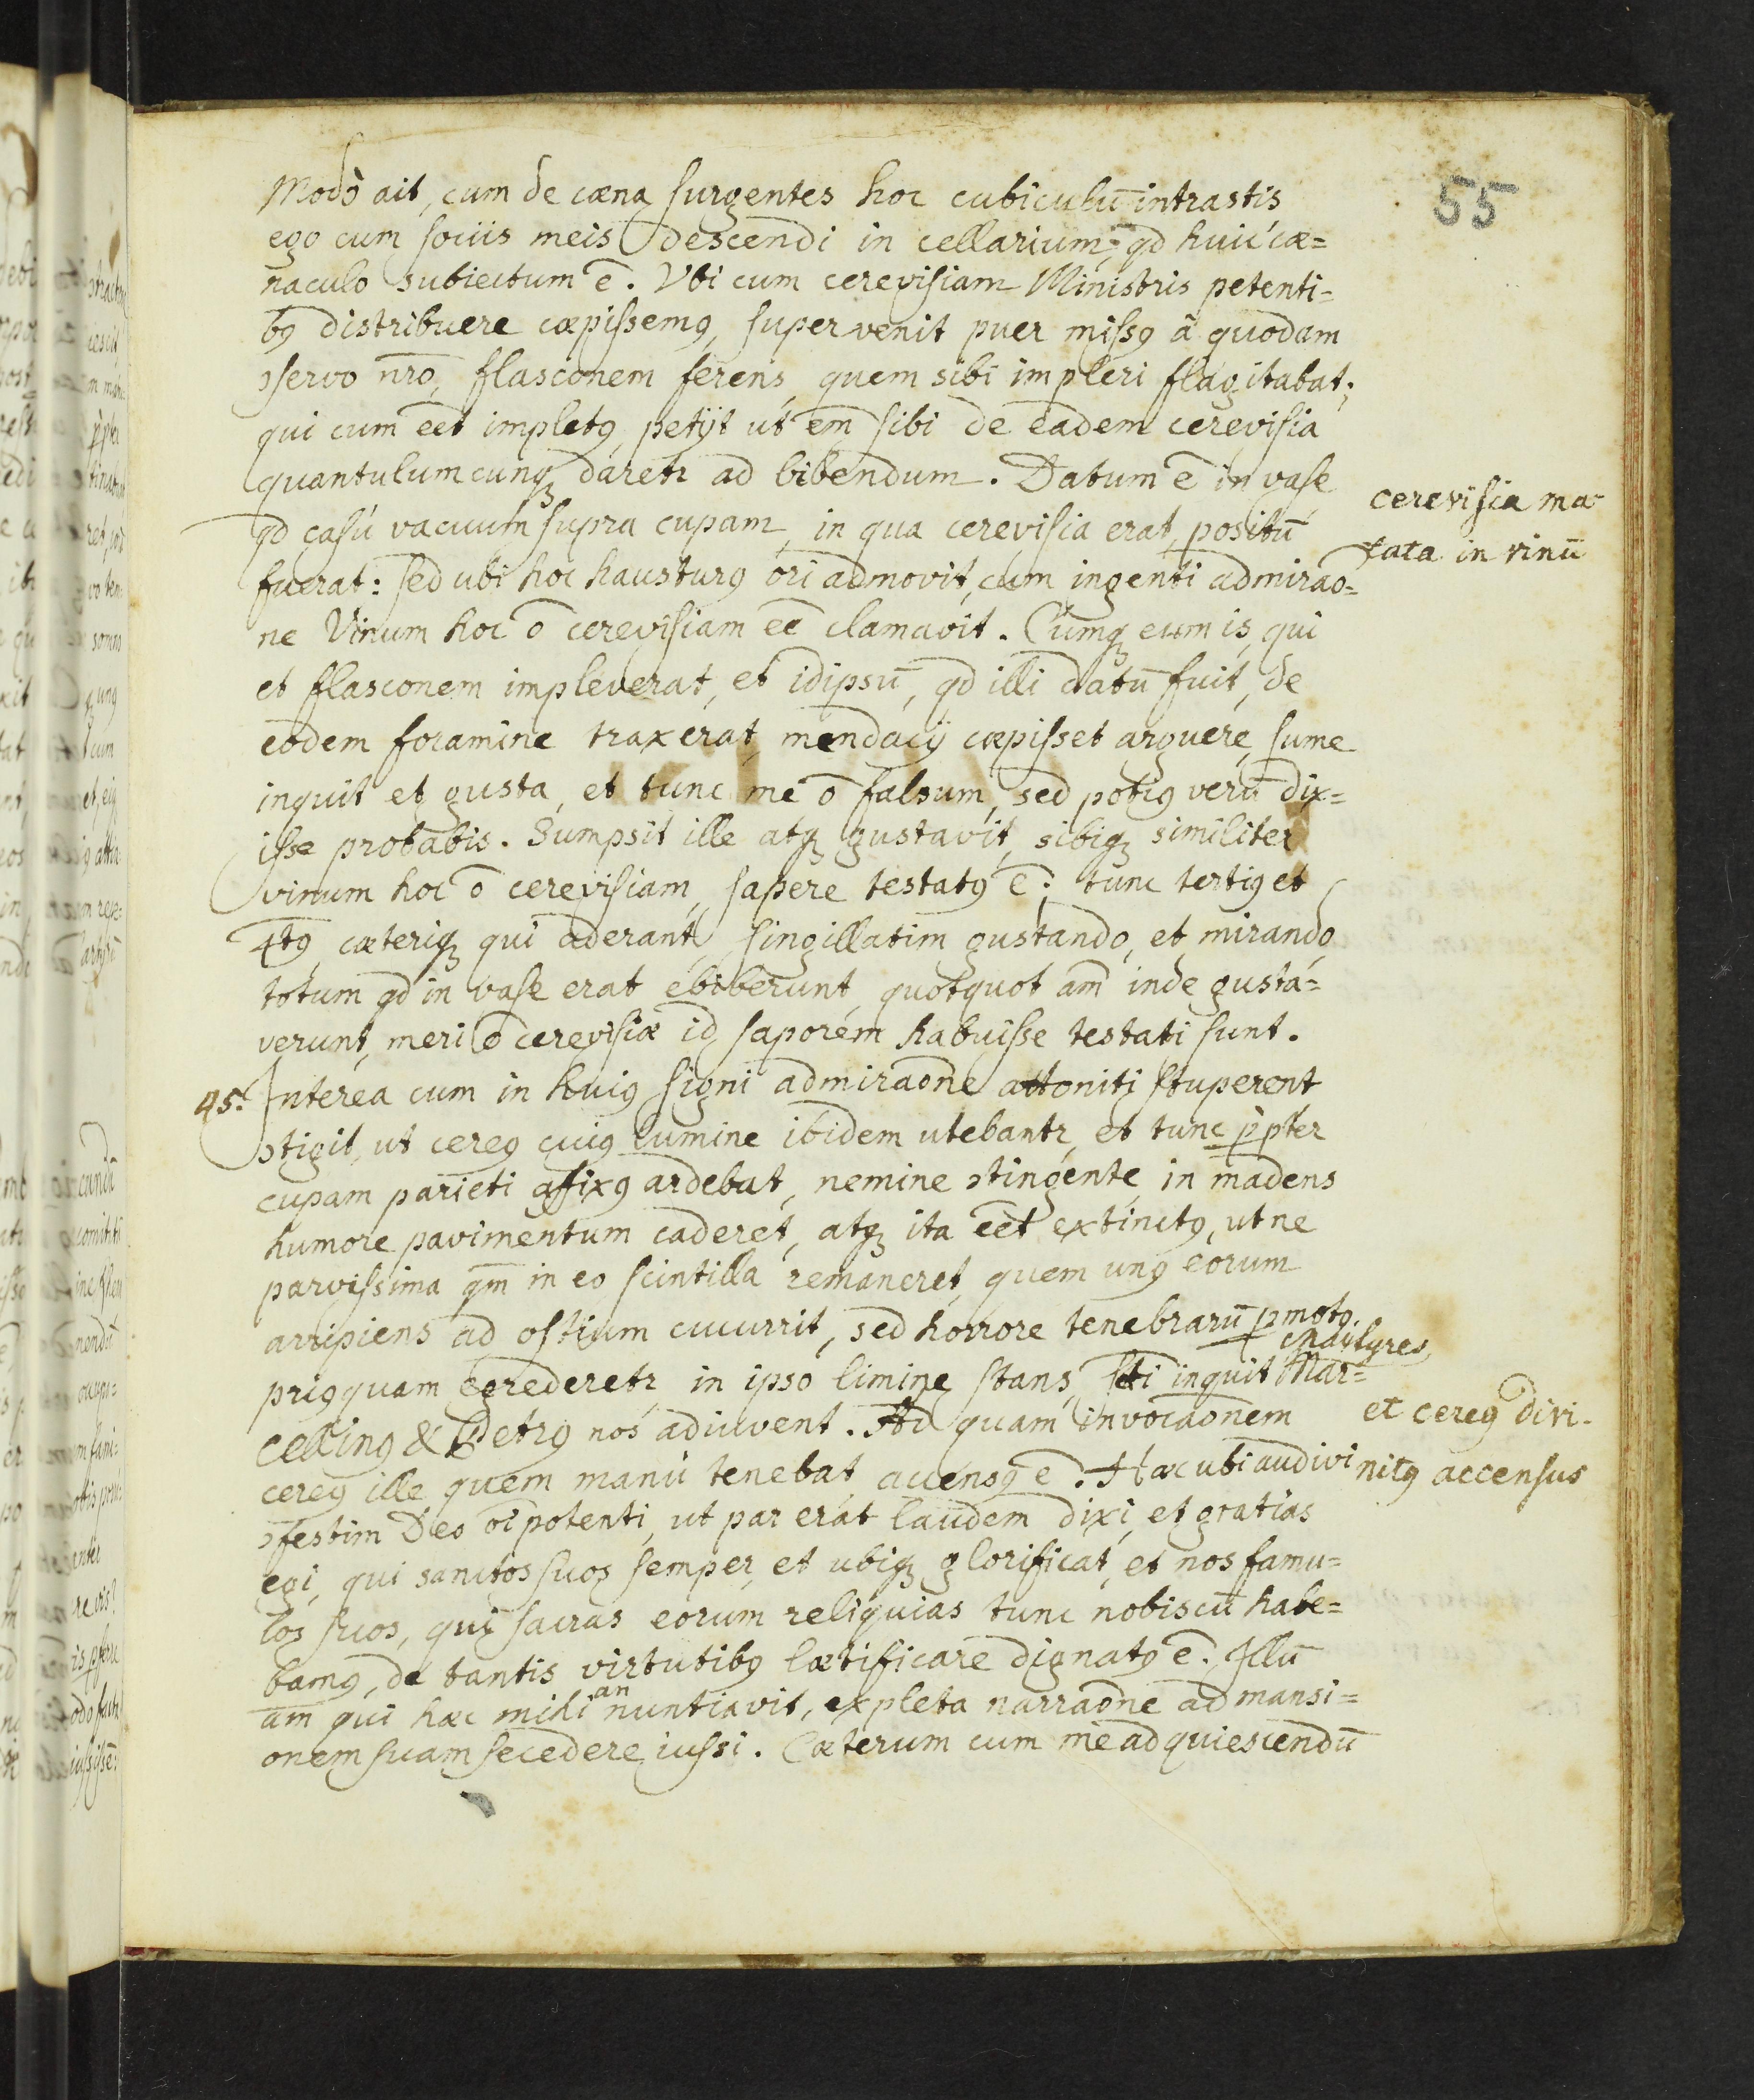 55
Modò ait, cum de cæna surgentes hoc cubiculū intrastis
ego cum sociis meis descendi in cellarium, qd huic cæ=
naculo subiectum ē. Vbi cum cerevisiam Ministris petenti=
bꝰ distribuere cæpissemꝰ, supervenit puer missꝰ à quodam
ↄservo nr̄o, flasconem ferens, quem sibi impleri flagitabat;
qui cum eēt impletꝰ, petijt ut em̄ sibi de eadem cerevisia
quantulumcunqꝫ daretr ad bibendum. Datum ē in vase
qd casú vacuum supra cupam, in qua cerevisia erat, positū
fuerat: sed ubi hoc hausturꝰ ori admovit, cum ingenti admirao=
ne Vinum hoc ō cerevisiam eē clamavit. Cumqꝫ eum is, qui
et flasconem impleverat, et idipsū, qd illi datū fuit, de
eodem foramine traxerat, mendacij cæpisset arguere, sume
inquit et gusta, et tunc me ō falsum, sed potiꝰ verū dix=
isse probabis. Sumpsit ille atqꝫ gustavit, sibiqꝫ similiter
vinum hoc ō cerevisiam, sapere testatꝰ ē: tunc tertiꝰ et
4tꝰ cæteriqꝫ qui aderant, singillatim gustando, et mirando,
totum qd in vase erat ebiberunt, quotquot am̄ inde gusta=
verunt, meri ō cerevisiæ id saporem habuisse testati sunt.
45. Interea cum in huiꝰ signi admiraone attoniti stuperent
ↄtigit, ut cereꝰ cuiꝰ lumine ibidem utebantr, et tunc p̄pter
cupam parieti affixꝰ ardebat, nemine ↄtingente, in madens
humore pavimentum caderet, atqꝫ ita eēt extinctꝰ, ut ne
parvissima qm̄ in eo scintilla remaneret, quem unꝰ eorum
arripiens ad ostium cucurrit, sed horrore tenebrarū pmotꝰ
priꝰquam egrederetr, in ipso limine stans, Sti inquit Martyres Mar=
cellinꝰ & Petrꝰ nos adiuvent. Ad quam invocaonem
cereꝰ ille quem manu tenebat, accensꝰ ē. Hæc ubi audivi
ↄfestim Deo oīpotenti, ut par erat laudem dixi, et gratias
egi, qui sanctos suos semper, et ubiqꝫ glorificat, et nos famu=
los suos, qui sacras eorum reliquias tunc nobiscū habe=
bamꝰ, de tantis virtutibꝰ lætificare dignatꝰ ē. Illū
am̄ qui hæc mihi annuntiavit, expleta narraone ad mansi=
onem suam secedere iussi. Cæterum cum me ad quiescendū
cerevisia mu-
tata in vinū
et cereꝰ divi-
nitꝰ accensus